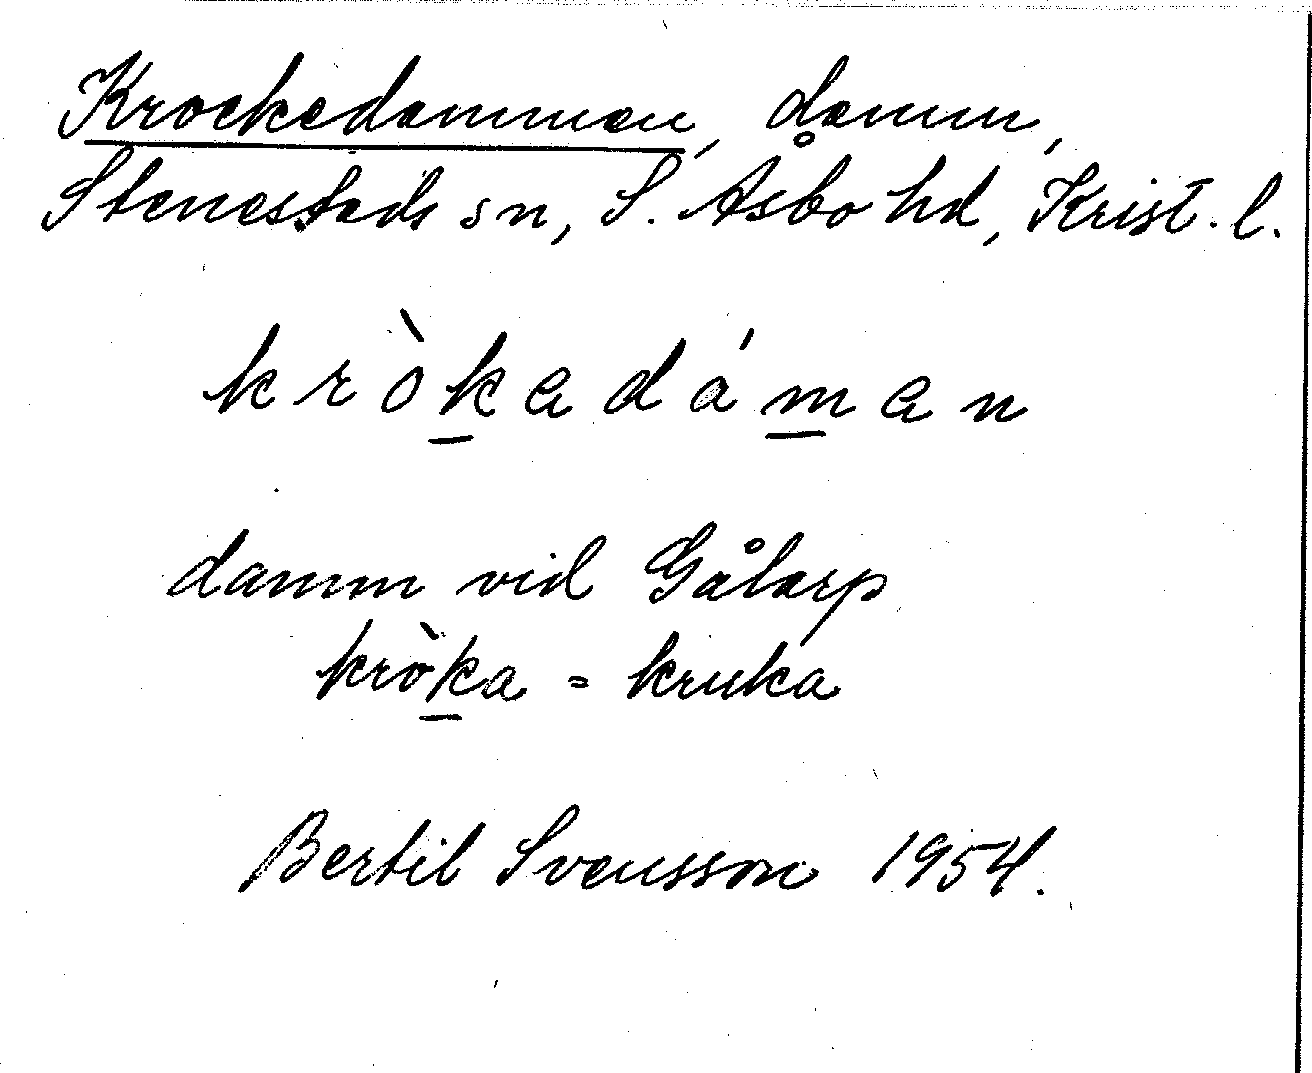 Krockedammen, damm,
Stenestads sn, S. Åsbo hd, Krist. l.
kròkadáman
damm vid Gålarp
kròka = kruka
Bertil Svensson 1954.